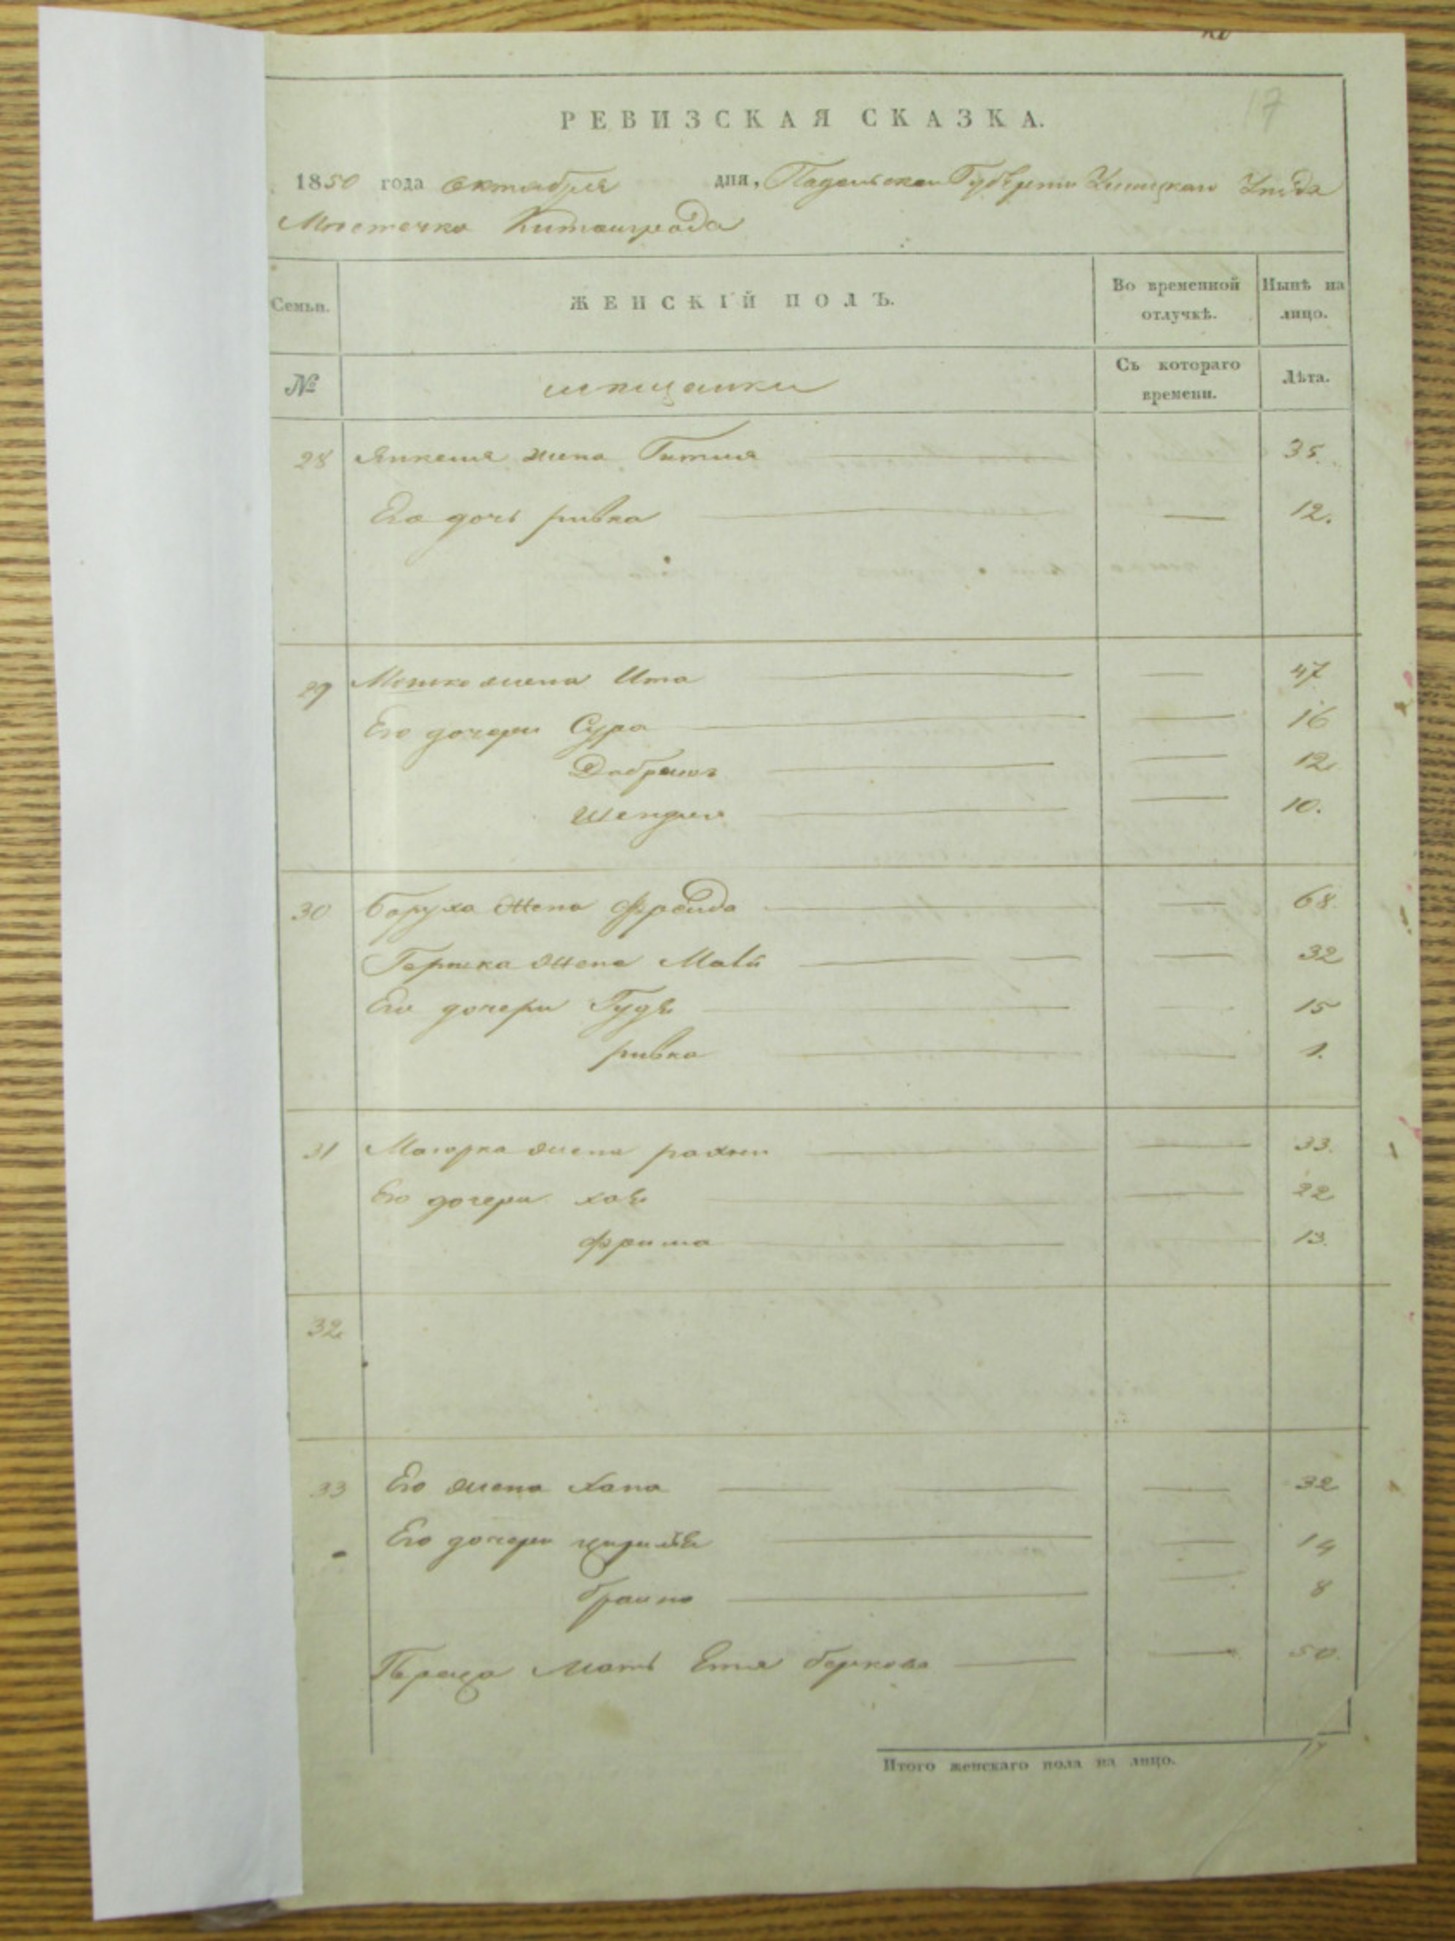 17
РЕВИЗСКАЯ СКАЗКА.
1850 года октября дня, Падольской Губерніи Ушицкаго Уѣзда
Мѣстечка Китайгрода
Семьи. ЖЕНСКІЙ ПОЛЪ. Во временной отлучкѣ. Нынѣ на лицо.
№ мѣщанки Съ котораго времени. Лѣта.
28 Янкеля жена Гитля 35.
Его дочь ривка — 12.
29 Мошка жена Ита — 47
Его дочери Сура — 16
Добришъ — 12
Шендля — 10.
30 Баруха жена Фрейда — 68
Гершка жена — 32
Его дочери — 15
ривка — 1.
31 жена — 33.
Его дочери хаѣ — 22
фрима — 13.
32
33 Его жена Хана — 32
Его дочери — 14
браина — 8
Мать Етля беркова — 50.
Итого женскаго пола на лицо. 17